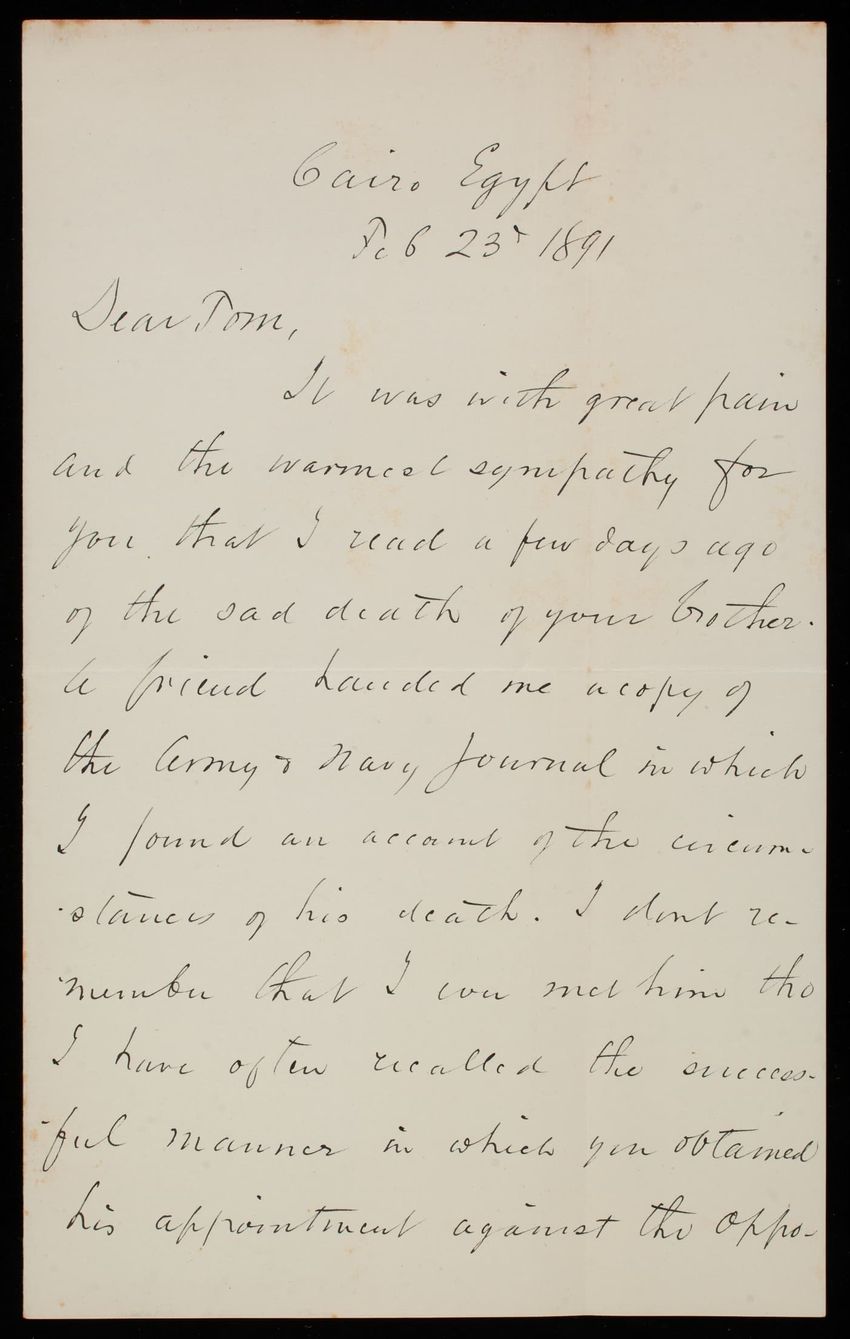 Cairo Egypt
Feb 23d 1891
Dear Tom,
It was with great pain
and the warmest sympathy for
you that I read a few days ago
of the sad death of your brother.
A friend handed me a copy of
the Army & Navy Journal in which
I found an account of the circum-
-stances of his death. I dont re-
-member that I ever met him tho
I have often recalled the success-
-ful manner in which you obtained
his appointment against the oppo-